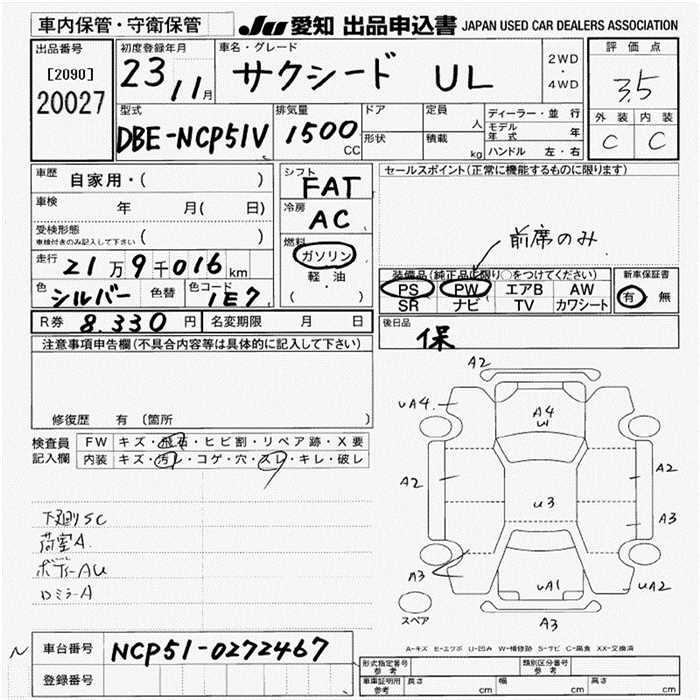 車内保管・守衛保管
JU 愛知 出品申込書 JAPAN USED CAR DEALERS ASSOCIATION
出品番号
[2090]
20027
初度登録年月
23 11月
車名・グレード
サクシード UL
2WD
・
4WD
評価点
3.5
外装 内装
C C
型式
DBE-NCP51V
排気量
1500 CC
ドア
形状
定員 人
積載 kg
ディーラー・並行
モデル年式 年
ハンドル 左・右
車歴 自家用・( )
車検 年 月( 日)
受検形態
車検付きのみ記入して下さい ( )
走行 21万9千016km
色 シルバー 色替 色コード 1E7
シフト
FAT
冷房
AC
燃料
ガソリン
軽・油
( )
セールスポイント(正常に機能するものに限ります)
前席のみ
装備品(純正品に限り○をつけてください)
PS PW エアB AW
SR ナビ TV カワシート
新車保証書
有 無
R券 8.330円 名変期限 月 日
後日品
保
注意事項申告欄(不具合内容等は具体的に記入して下さい)
修復歴 有 〔箇所 〕
検査員 FW キズ・飛石・ヒビ割・リペア跡・X要
記入欄 内装 キズ・汚れ・コゲ・穴・スレ・キレ・破レ
下廻りSC
荷室A
ボディーAU
ロミラーA
A2
UA4
A4
U1
A2
A2
U3
A3
A3
UA1
UA2
スペア
A3
A-キズ E-エクボ U-凹み W-補修跡 S-サビ C-腐食 XX-交換済
N
車台番号 NCP51-0272467
登録番号
形式指定番号
参考
類別区分番号
参考
車庫証明用
参考
長さ cm 幅 cm 高さ cm